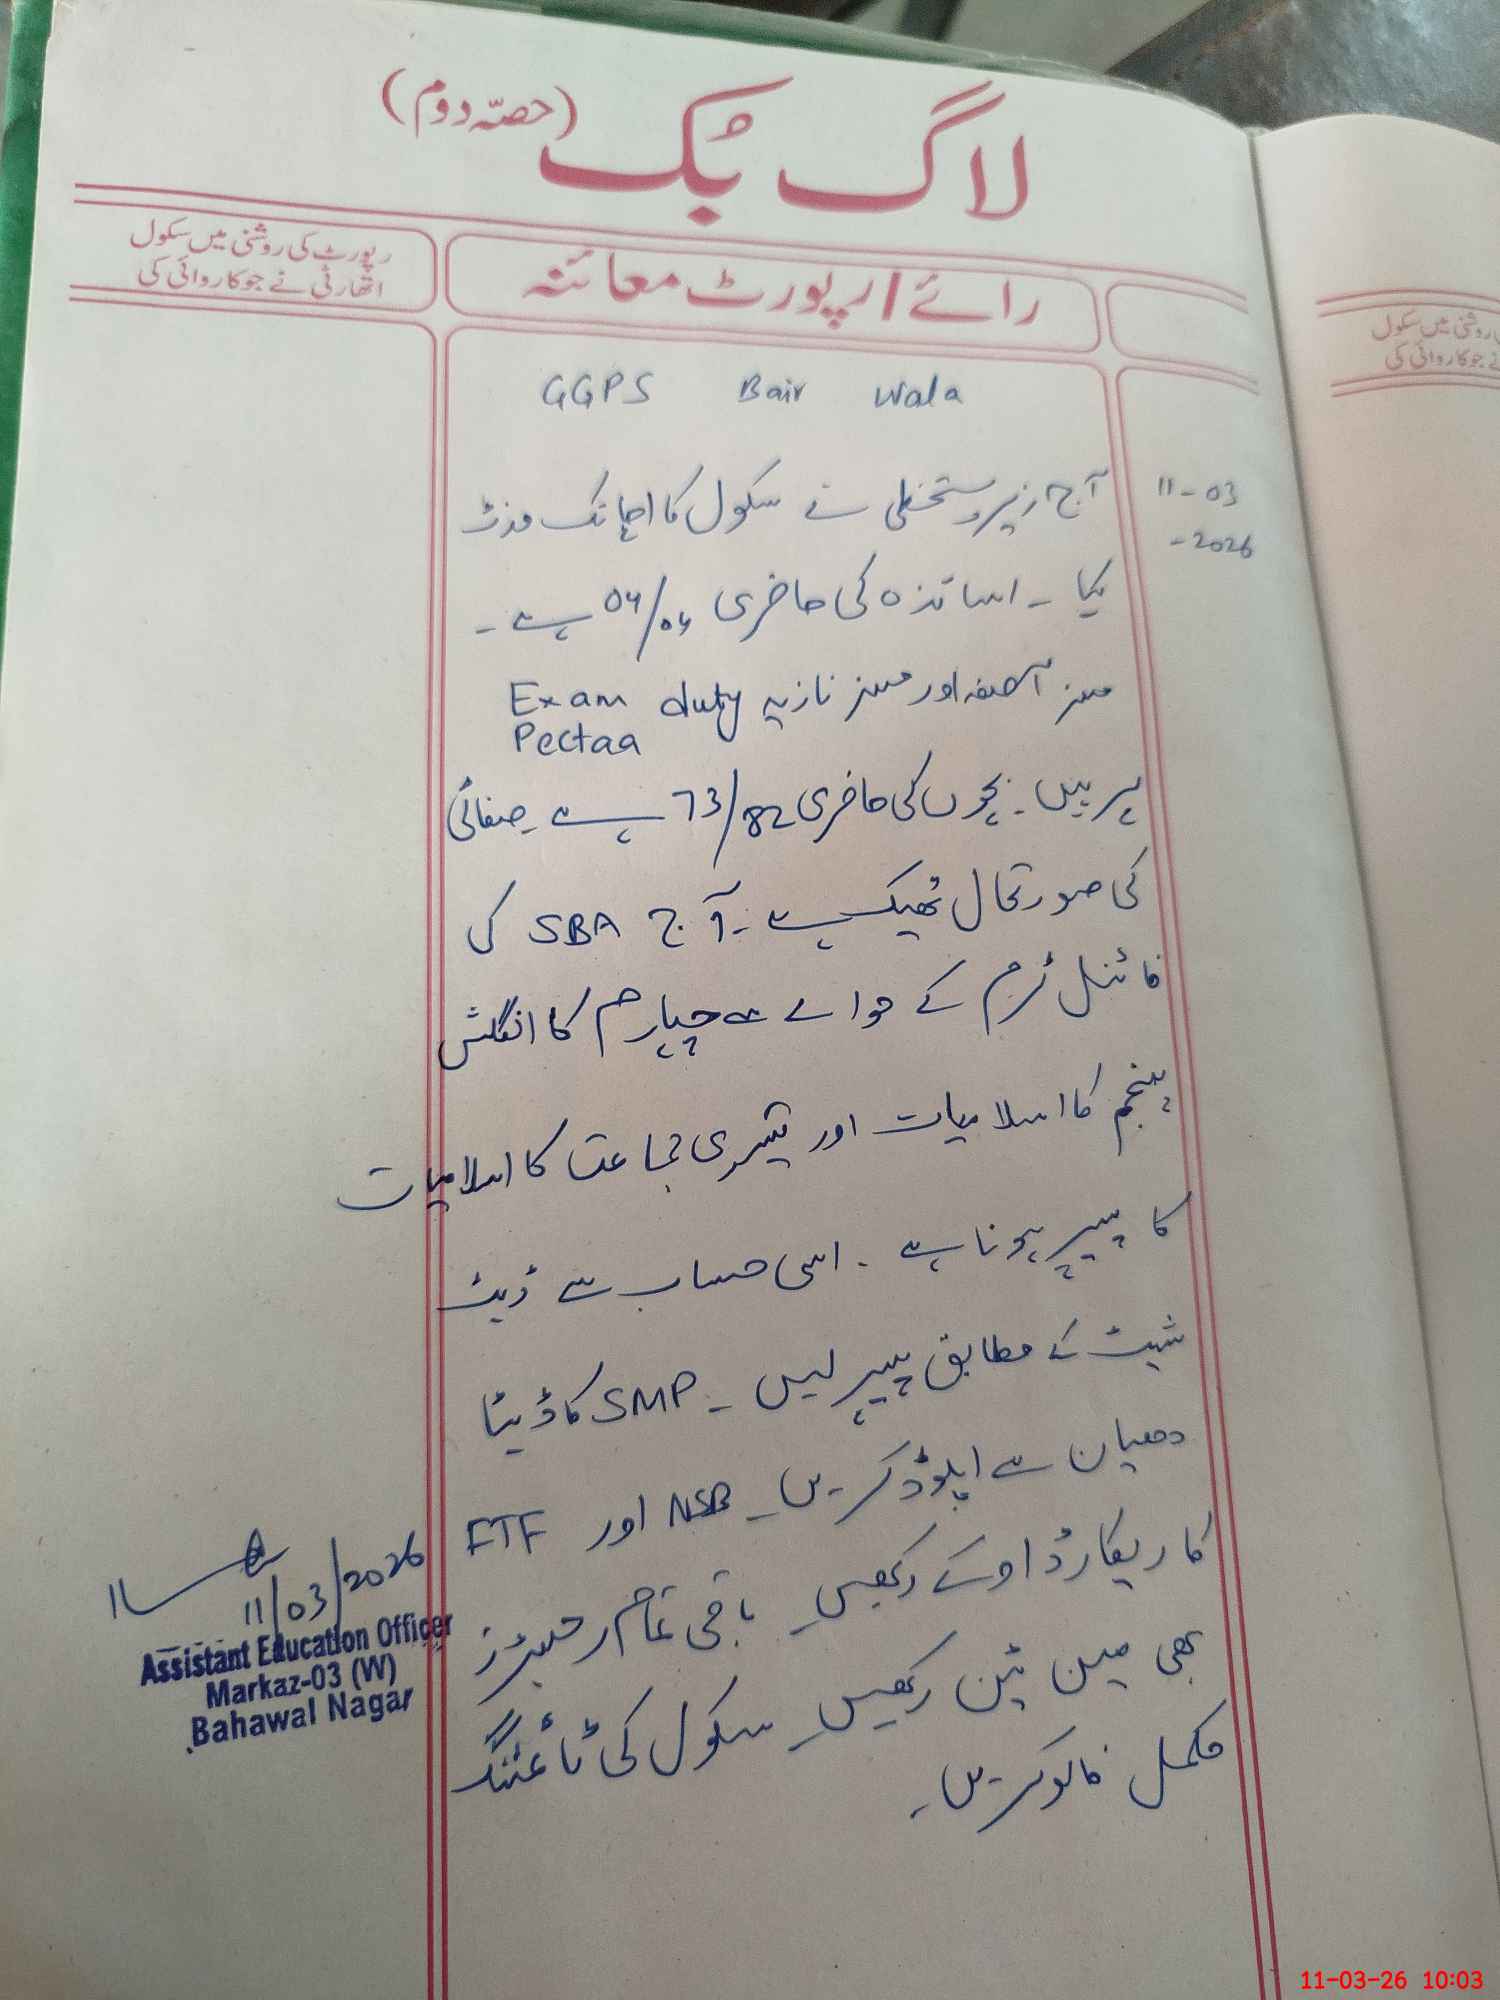 لاگ بُک (حصّہ دوم)
رائے / رپورٹ معائنہ
رپورٹ کی روشنی میں سکول
اتھارٹی نے جو کاروائی کی
GGPS Bair Wala
11-03
-2026
آج زیر دستخطی نے سکول کا اچانک وزٹ
کیا ۔ اساتذہ کی حاضری 04/04 ہے ۔
مسز آصفہ اور مسز نازیہ Exam duty
Pectaa
پر ہیں ۔ بچوں کی حاضری 73/82 ہے ۔ صفائی
کی صورتحال ٹھیک ہے ۔ آج SBA کی
فائنل ٹرم کے حوالے سے چہارم کا انگلش
پنجم کا اسلامیات اور تیسری جماعت کا اسلامیات
کا پیپر ہونا ہے ۔ اسی حساب سے ڈیٹ
شیٹ کے مطابق پیپر لیں ۔ SMP کا ڈیٹا
دھیان سے اپلوڈ کریں ۔ NSB اور FTF
کا ریکارڈ اوکے رکھیں ۔ باقی تمام رجسٹرز
بھی مین ٹین رکھیں ۔ سکول کی ٹائمنگ
مکمل فالو کریں ۔
11/03/2026
Assistant Education Officer
Markaz-03 (W)
Bahawal Nagar
روشنی میں سکول
نے جو کاروائی کی
11-03-26 10:03